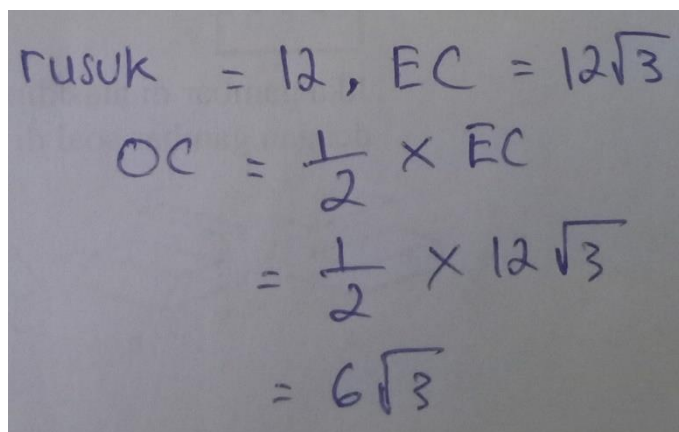 rusuk = 12, EC = 12√3
OC = 1/2 × EC
= 1/2 × 12√3
= 6√3